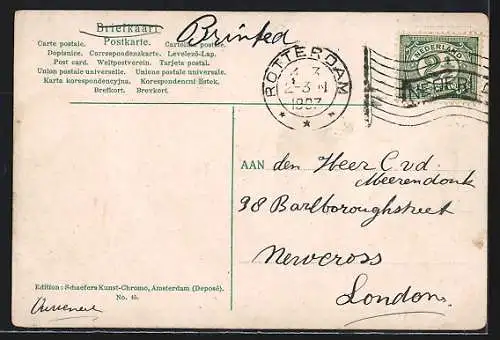 Briefkaart
Brinted
Postkarte.
Carte postale.
Dopisnice. Correspondenzkarte. Levelező-Lap.
Post card. Weltpostverein. Tarjeta postal.
Union postale universelle. Unione postale universale.
Karta korespondencyjna. Korespondenzni listek.
Brefkort. Brevkort.
ROTTERDAM
3
2-3 N
1907
NEDERLAND
2½
AAN den Heer C. vd.
Meerendonk
98 Barlboroughstreet
Newcross
London
Edition: Schaefers Kunst-Chromo, Amsterdam (Deposé).
No. 45.